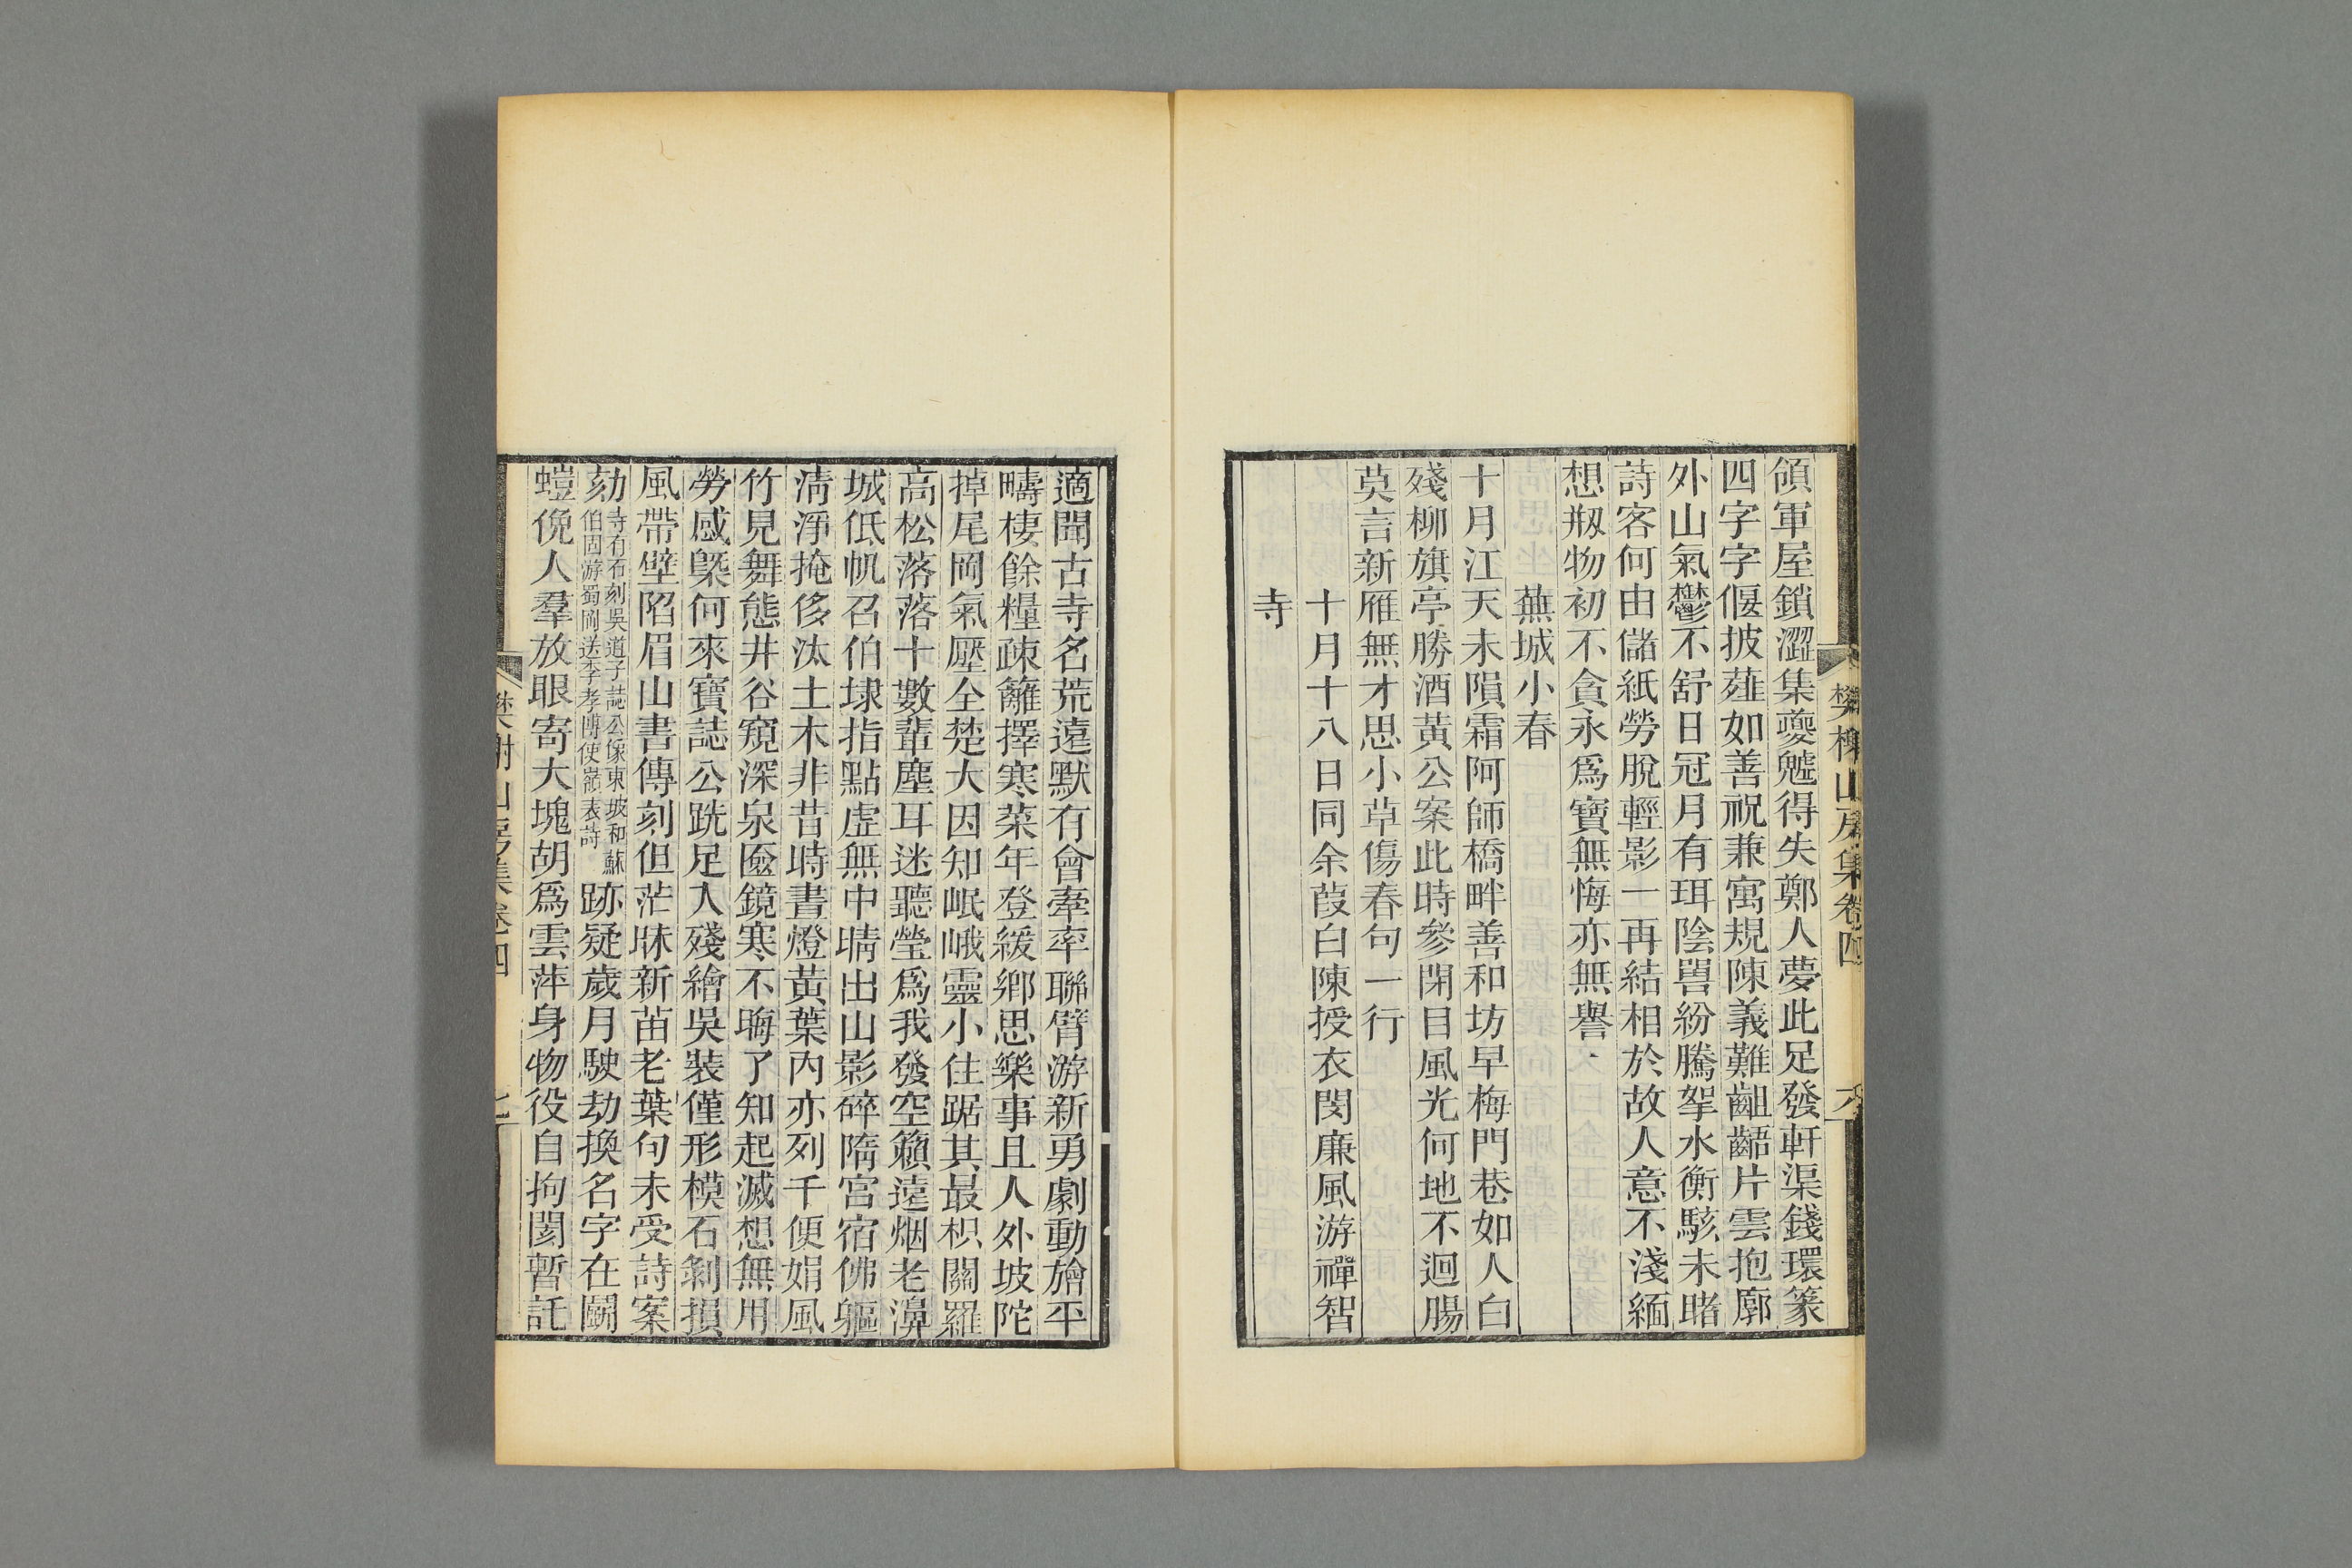 樊榭山房集卷四
六
領軍屋鎖澀集夔魖得失鄭人夢此足發軒渠錢環篆
四字字偃披薤如善祝兼寓規陳義難齟齬片雲抱廓
外山氣鬱不舒日冠月有珥陰罾紛騰挐水衡駭未睹
詩客何由儲紙勞脫輕影一再結相於故人意不淺緬
想剏物初不貪永爲寶無悔亦無譽
蕪城小春
十月江天未隕霜阿師橋畔善和坊早梅門巷如人白
殘柳旗亭勝酒黃公案此時參閉目風光何地不迴腸
莫言新雁無才思小草傷春句一行
十月十八日同余葭白陳授衣閔廉風游禪智
寺
適聞古寺名荒遠默有會牽率聯臂游新勇劇動旝平
疇棲餘糧疎籬擇寒菜年登緩鄉思樂事且人外坡陀
掉尾岡氣壓全楚大因知岷峨靈小住踞其最枳關羅
高松落落十數輩塵耳迷聽瑩爲我發空籟遠烟老濞
城低帆召伯埭指點虛無中晴出山影碎隋宮宿佛軀
淸淨掩侈汰土木非昔時晝燈黃葉內亦列千便娟風
竹見舞態井谷窺深泉匳鏡寒不晦了知起滅想無用
勞感槩何來寶誌公跣足入殘繪吳裝僅形模石剝損
風帶壁陷眉山書傳刻但茫昧新苗老葉句未受詩案
劾寺有石刻吳道子誌公像東坡和蘇伯固游蜀岡送李孝博使嶺表詩跡疑歲月駛劫換名字在鬭
螘俛人羣放眼寄大塊胡爲雲萍身物役自拘閡暫託
樊榭山房集卷四
七